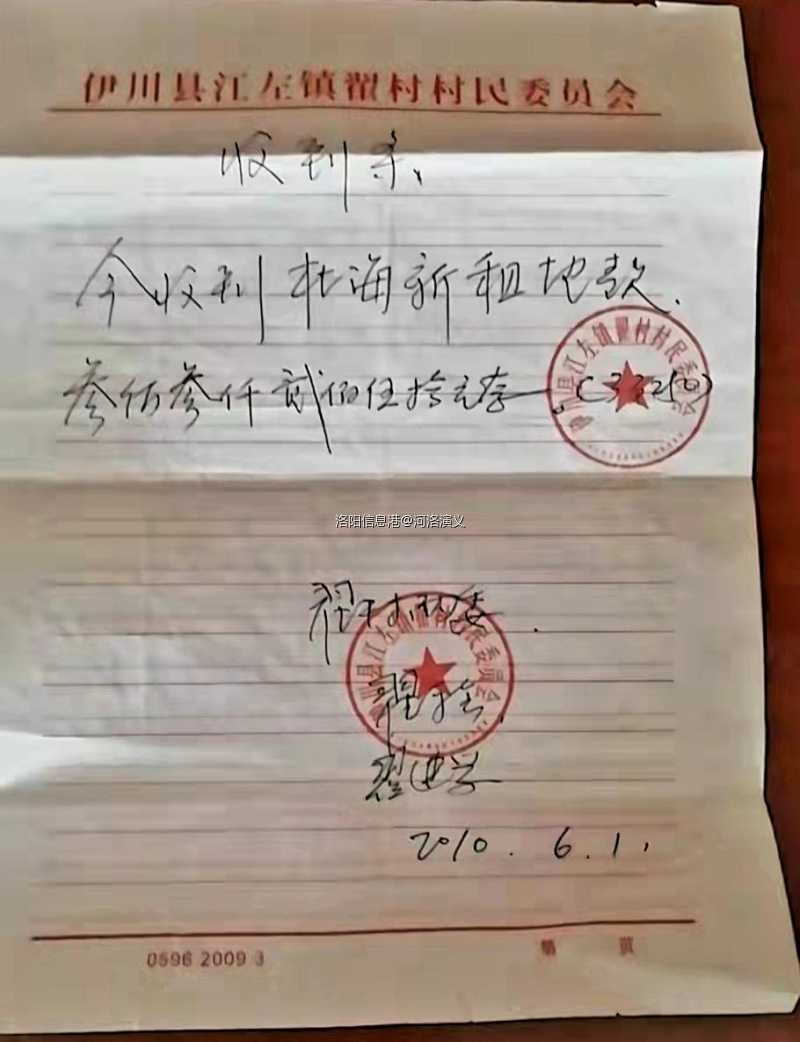 伊川县江左镇翟村村民委员会
收到条、
今收到杜海新租地款.
叁仟贰佰伍拾元
伊川县江左镇翟村村民委员会
洛阳信息港@河洛演义
翟村村委.
伊川县江左镇翟村村民委员会
2010.6.1.
0596 2009 3
第 页